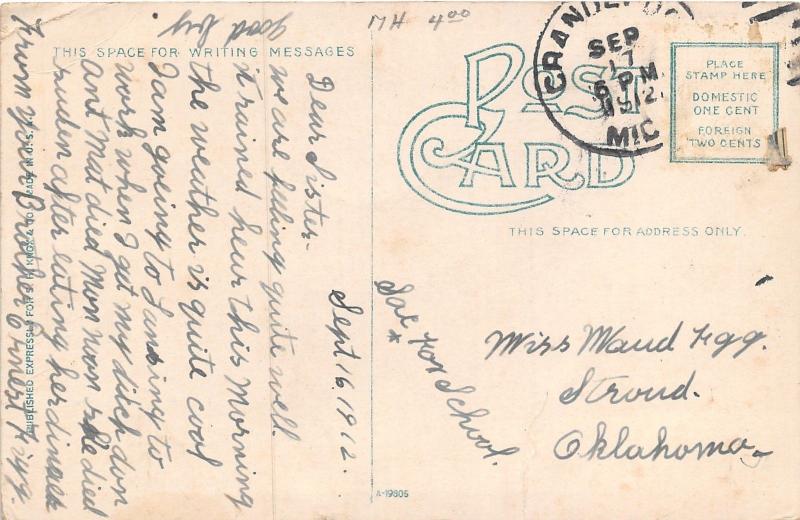 MH 4.00
THIS SPACE FOR WRITING MESSAGES
Sept 16. 1912.
Dear Sister-
we are filling quite well.
it rained heur this Morning
the weather is quite cool
I am goeing to Lansing to
work when I get my ditch don
ant Mat died Mon non she died
suden after eating her dinner
From your Brother Ernest Figg.
good by
PUBLISHED EXPRESSLY FOR S. H. KNOX & CO. MADE IN U. S. A.
POST CARD
GRAND LEDGE
SEP
17
6 PM
1912
MICH
PLACE
STAMP HERE
DOMESTIC
ONE CENT
FOREIGN
TWO CENTS
THIS SPACE FOR ADDRESS ONLY.
Miss Maud Figg.
Stroud.
Oklahoma
* School.
A-19805